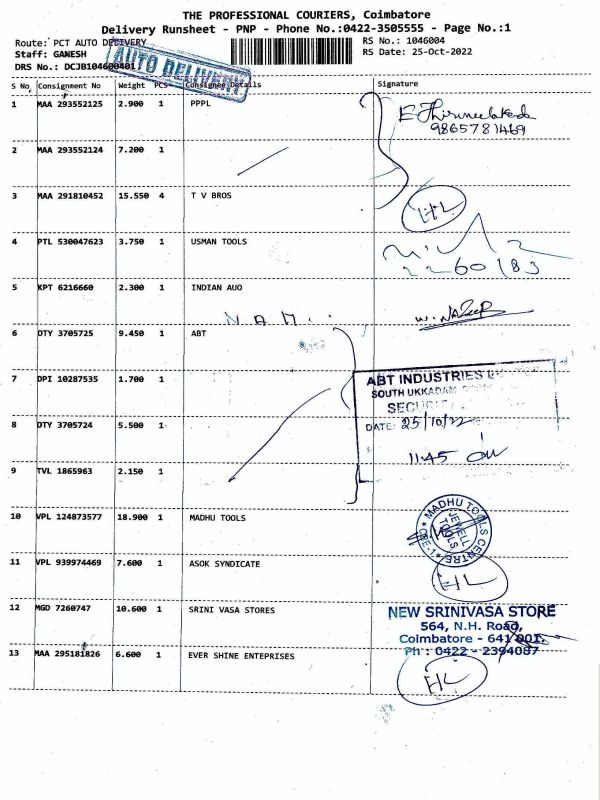 THE PROFESSIONAL COURIERS, Coimbatore
Delivery Runsheet - PNP - Phone No.:0422-3505555 - Page No.:1
Route: PCT AUTO DELIVERY
RS No.: 1046004
Staff: GANESH
RS Date: 25-Oct-2022
DRS No.: DCJB104600401
AUTO DELIVERY
S No Consignment No Weight PCS Consignee Details Signature
1 MAA 293552125 2.900 1 PPPL
9865781469
2 MAA 293552124 7.200 1
3 MAA 291810452 15.550 4 T V BROS
HL
4 PTL 530047623 3.750 1 USMAN TOOLS
5 KPT 6216660 2.300 1 INDIAN AUO
6 DTY 3705725 9.450 1 ABT
7 DPI 10287535 1.700 1
ABT INDUSTRIES
SOUTH UKKADAM
8 DTY 3705724 5.500 1
DATE: 25/10/22
11.45
9 TVL 1865963 2.150 1
10 VPL 124873577 18.900 1 MADHU TOOLS
MADHU TOOLS CENTRE
JEWELL TOOLS
11 VPL 939974469 7.600 1 ASOK SYNDICATE
HL
12 MGD 7260747 10.600 1 SRINI VASA STORES
NEW SRINIVASA STORE
564, N.H. Road,
Coimbatore - 641 001.
Ph : 0422 - 2394087
13 MAA 295181826 6.600 1 EVER SHINE ENTEPRISES
HL